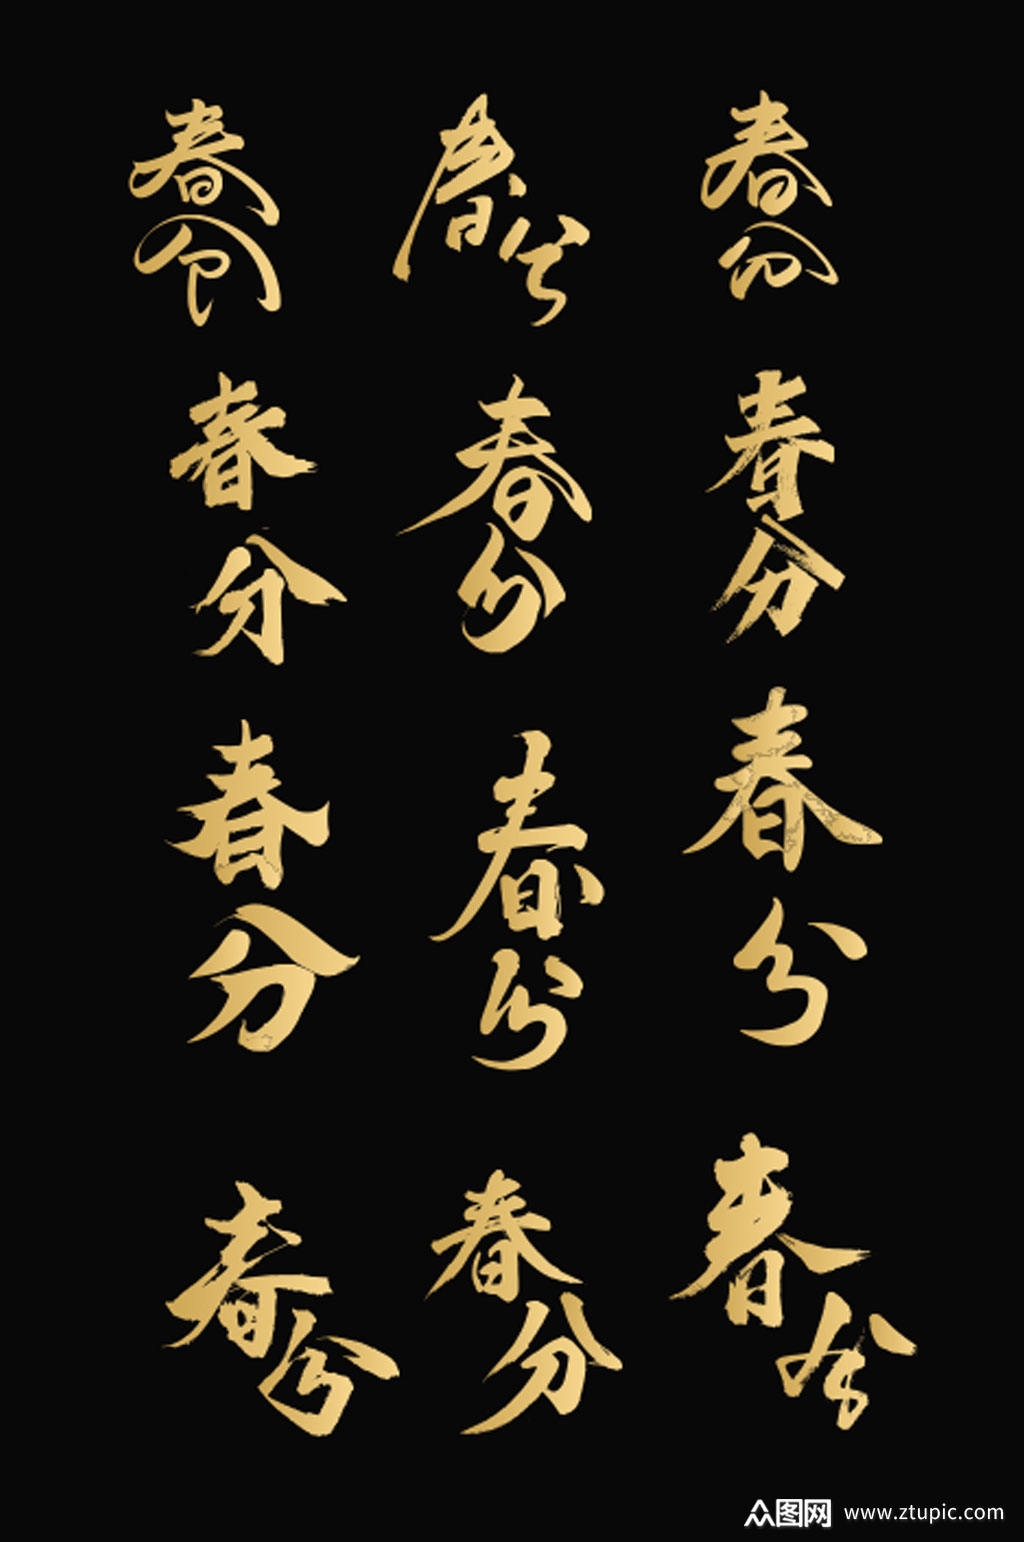 春分 春分 春分
春分 春分 春分
春分 春分 春分
春分 春分 春分
众图网 www.ztupic.com